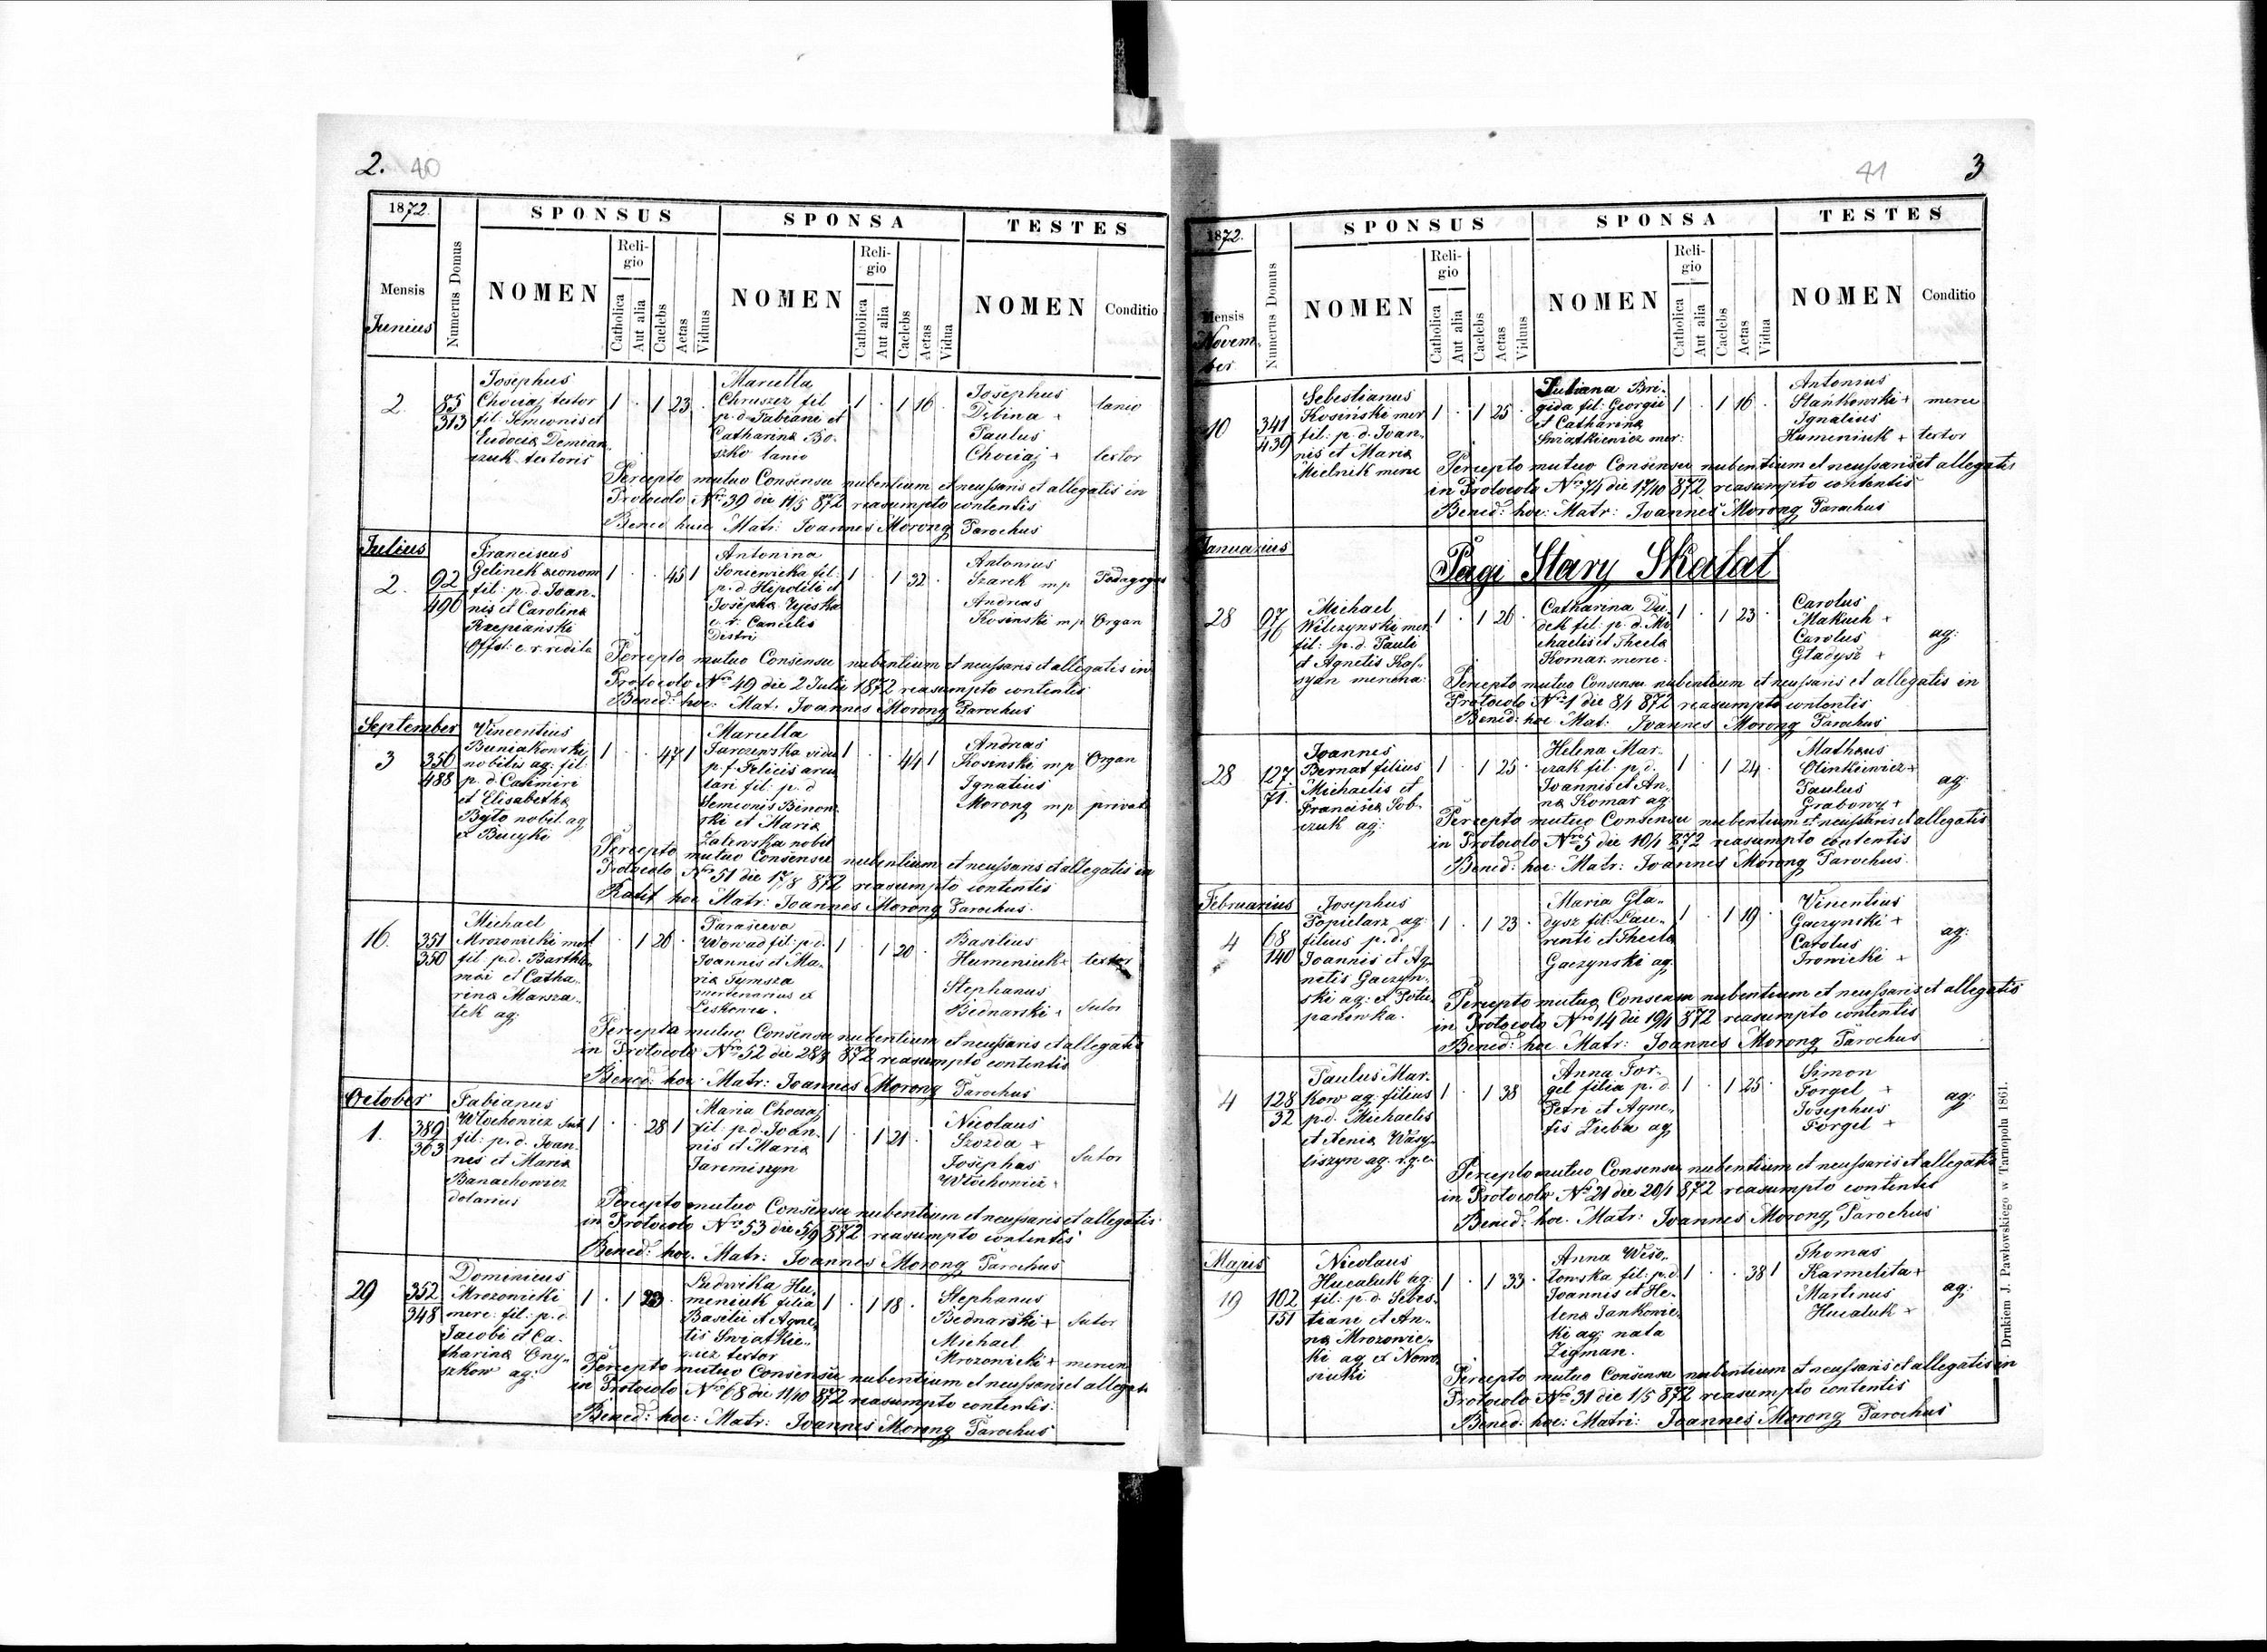 2. 40
1872.
SPONSUS
SPONSA
TESTES
Mensis
Junius
Numerus Domus
NOMEN
Religio
Catholica
Aut alia
Caelebs
Aetas
Viduus
NOMEN
Religio
Catholica
Aut alia
Caelebs
Aetas
Vidua
NOMEN
Conditio
2.
85
313
Josephus
Chociaj textor
fil: Semionis et
Eudocia Demian
czuk textoris
1 . 1 23 .
Marcella
Chruszcz fil
p. d. Fabiani et
Catharina Bo-
szko lanio
1 . 1 16 .
Josephus
Dzlina +
Paulus
Chociaj +
lanio
textor
Percepto mutuo Consensu nubentium et neussaris et allegatis in
Protocolo Nro 39 die 11/5 872 reasumpto contentis
Bened huic Matr: Joannes Morong Parochus
Julius
2.
92
490
Franciscus
Gelinek œconom
fil: p. d. Joan-
nis et Carolina
Rzepianski
Offst: c. r. redita
1 . . 45 1
Antonina
Soniewicka fil:
p. d. Hipoliti et
Josepha Ujeska
c. r. Cancelis
Distri
1 . 1 32 .
Antonius
Szarek mp
Andreas
Kosinski mp
Pedagogus
Organ
Percepto mutuo Consensu nubentium et neussaris et allegatis in
Protocolo Nro 49 die 2 Julii 1872 reasumpto contentis
Bened: hoc: Mat. Joannes Morong Parochus
September
3
350
488
Vincentius
Buniakowski
nobilis ag: fil:
p. d. Casimiri
et Elisabetha
Byto nobil. ag
ex Bucyki
1 . . 47 1
Marcella
Jarczewska vidua
p. f. Felicis arcu
lari fil: p. d
Semionis Binon
ski et Maria
Zalewska nobil
1 . . 44 1
Andreas
Kosinski mp
Ignatius
Morong mp
Organ
privat
Percepto mutuo Consensu nubentium et neussaris et allegatis in
Protocolo Nro 51 die 17/8 872 reasumpto contentis
Ratif hoc Matr: Joannes Morong Parochus.
16.
351
350
Michael
Mrozowicki mer
fil: p. d. Bartho-
mæi et Catha-
rina Marsza-
lek ag:
1 . 1 26 .
Parasceva
Wowad fil: p. d.
Joannis et Ma-
ria Tymsza
mercenarius ex
Leskowce.
1 . 1 20 .
Basilius
Humeniuk +
Stephanus
Bednarski +
textor
Sutor
Percepta mutuo Consensu nubentium et neussaris et allegatis
in Protocolo Nro 52 die 28/8 872 reasumpto contentis
Bened: hoc: Matr: Joannes Morong Parochus
October
1.
389
363
Fabianus
Wlochowicz Sut
fil: p. d. Joan-
nis et Maria
Banachowicz
dolarius
1 . . 28 1
Maria Chociaj
fil: p. d. Joan-
nis et Maria
Jaremiszyn
1 . 1 21 .
Nicolaus
Szozda +
Josephas
Wlochowicz +
Sutor
Percepto mutuo Consensu nubentium et neussaris et allegatis
in Protocolo Nro 53 die 5/9 872 reasumpto contentis
Bened: hoc. Matr: Joannes Morong Parochus
29
352
348
Dominicus
Mrozowicki
merc: fil: p. d.
Jacobi et Ca-
tharina Ony-
szkow ag:
1 . 1 23 .
Ludwika Hu-
meniuk filia
Basilii et Agne-
tis Swiatkie-
wicz textor
1 . 1 18 .
Stephanus
Bednarski +
Michael
Mrozowicki +
Sutor
mercen
Percepto mutuo Consensu nubentium et neussaris et allegatis
in Protocolo Nro 68 die 11/10 872 reasumpto contentis.
Bened: hoc: Matr: Joannes Morong Parochus
41 3
1872.
SPONSUS
SPONSA
TESTES
Mensis
Novem-
ber
Numerus Domus
NOMEN
Religio
Catholica
Aut alia
Caelebs
Aetas
Viduus
NOMEN
Religio
Catholica
Aut alia
Caelebs
Aetas
Vidua
NOMEN
Conditio
10
341
439
Sebestianus
Kosiński mer
fil: p. d. Joan-
nis et Maria
Mielnik merce
1 . 1 25 .
Juliana Bri-
gida fil: Georgii
et Catharina
Swiatkiewicz mer:
1 . 1 16 .
Antonius
Stańkowski +
Ignatius
Humeniuk +
merce
textor
Percepto mutuo Consensu nubentium et neussaris et allegatis
in Protocolo Nro 74 die 17/10 872 reasumpto contentis
Bened: hoc: Matr: Joannes Morong Parochus
Januarius
Pagi Stary Skałat
28
97
76
Michael
Wilczynski mer
fil: p. d. Pauli
et Agnetis Kas-
syan mercena:
1 . 1 26 .
Catharina Du-
dek fil: p. d. Mi
chaelis et Thecla
Komar. merce.
1 . 1 23 .
Carolus
Makuch +
Carolus
Gladysz +
ag:
Percepto mutuo Consensu nubentium et neussaris et allegatis in
Protocolo Nro 1 die 8/1 872 reasumpto contentis
Bened: hoc Mat: Joannes Morong Parochus
28
127
71.
Joannes
Bernat filius
Michaelis et
Francisca Sob-
czuk ag:
1 . 1 25 .
Helena Mar-
czak fil: p. d.
Joannis et An-
na Komar ag
1 . 1 24 .
Mathæus
Olinkiewicz +
Paulus
Grabowy +
ag:
Percepto mutuo Consensu nubentium et neussaris et allegatis
in Protocolo Nro 5 die 10/1 872 reasumpto contentis
Bened: hoc: Matr: Joannes Morong Parochus.
Februarius
4
68
140
Josephus
Popielarz ag:
filius p. d.
Joannis et Ag-
netis Gaczyn-
ski ag: ex Potu-
panowka.
1 . 1 23 .
Maria Gla-
dysz fil: Lau-
renti et Thecla
Gaczynski ag.
1 . 1 19 .
Vincentius
Gaczynski +
Carolus
Irowicki +
ag:
Percepto mutuo Consensu nubentium et neussaris et allegatis
in Protocolo Nro 14 die 19/1 872 reasumpto contentis
Bened: hoc Matr: Joannes Morong Parochus
4
128
32
Paulus Mar-
kow ag: filius
p. d. Michaelis
et Xenia Wasy-
liszyn ag. r. g. c.
1 . 1 38
Anna For-
gel filia p. d.
Petri et Agne-
tis Zieba ag
1 . 1 25 .
Simon
Forgel +
Josephus
Forgel +
ag:
Percepto mutuo Consensu nubentium et neussaris et allegatis
in Protocolo Nro 21 die 20/1 872 reasumpto contentis
Bened: hoc. Matr: Joannes Morong Parochus
Majus
19
102
151
Nicolaus
Hucaluk ag:
fil: p. d. Sebes-
tiani et An-
na Mrozowic-
ki ag ex Nowo-
siulki
1 . 1 33 .
Anna Wiso-
lowska fil: p. d.
Joannis et He-
lena Jankowic-
ki ag: nata
Zigman.
1 . . 38 1
Thomas
Karmelita +
Martinus
Hucaluk +
ag:
Percepto mutuo Consensu nubentium et neussaris et allegatis in
Protocolo Nro 31 die 1/5 872 reasumpto contentis
Bened: hoc: Matri: Joannes Morong Parochus
Drukiem J. Pawłowskiego w Tarnopolu 1861.